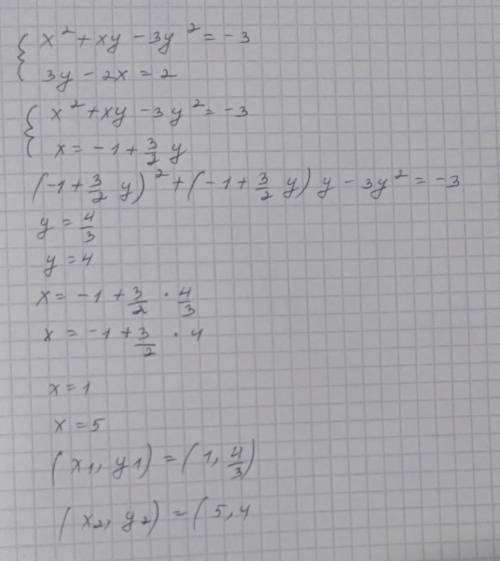 { x² + xy - 3y² = -3
3y - 2x = 2
{ x² + xy - 3y² = -3
x = -1 + 3/2 y
(-1 + 3/2 y)² + (-1 + 3/2 y) y - 3y² = -3
y = 4/3
y = 4
x = -1 + 3/2 · 4/3
x = -1 + 3/2 · 4
x = 1
x = 5
(x1, y1) = (1, 4/3)
(x2, y2) = (5, 4